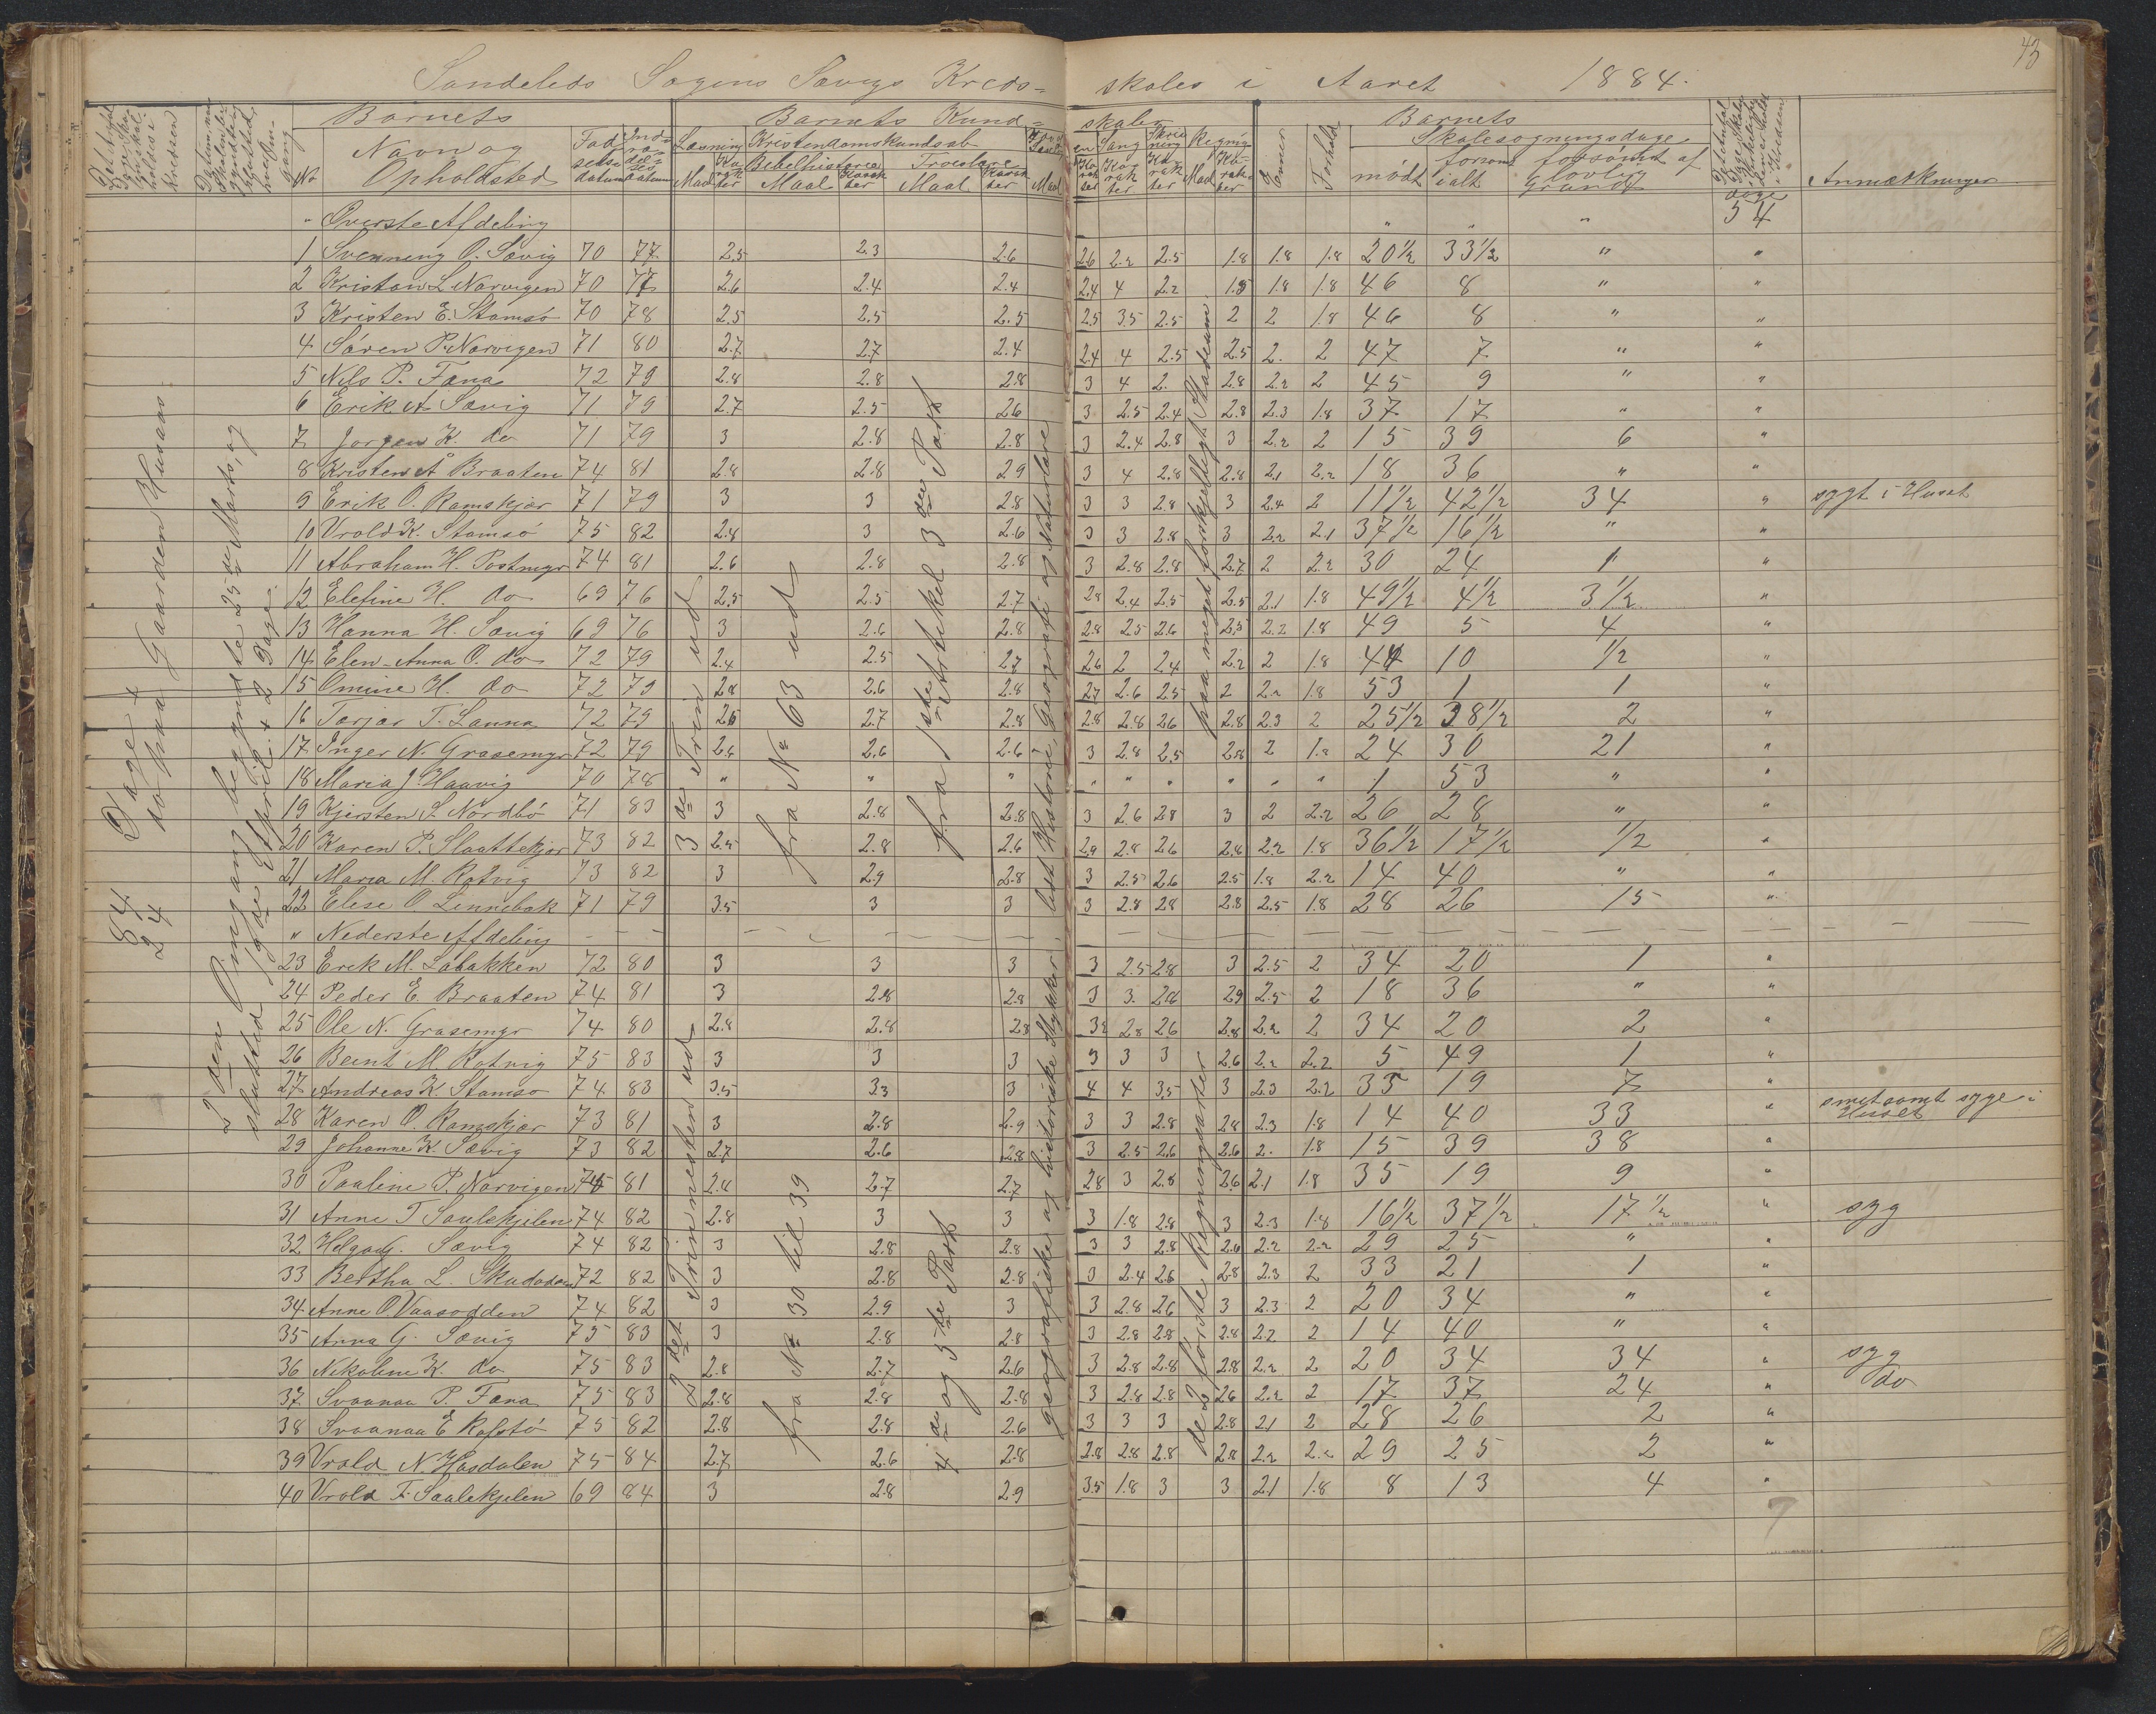 43
Sandeleds Sogns Sævigs Kreds= skoles i Aaret 1884.
Barnets Barnets Kund= skaber Barnets
No Navn og Opholdsted Fødselsdatum Indtrædelsesdatum Læsning Kristendomskundskab Sang Skrivning Regning Evner Forhold Skolesøgningsdage
Maal Karakter Bibelhistorie Troeslære
Maal Karakter Maal Karakter Maal Karakter mødt forsømt ialt forsømt af lovlig Grund Anmærkninger
dage
" Øverste Afdeling " " " 54
1 Svenning O. Sævig 70 77 2.5 2.3 2.6 2.6 2.2 2.5 1.8 1.8 1.8 20½ 33½ " "
2 Kristian L Narvigen 70 77 2.6 2.4 2.4 2.4 4 2.2 1.5 1.8 1.8 46 8 " "
3 Kristen E. Stamsø 70 78 2.5 2.5 2.5 2.5 3.5 2.5 2 2 1.8 46 8 " "
4 Søren P. Narvigen 71 80 2.7 2.7 2.4 2.4 4 2.5 2.5 2. 2 47 7 " "
5 Nils P. Fana 72 79 2.8 2.8 2.8 3 4 2. 2.8 2.2 2 45 9 " "
6 Erik A Sævig 71 79 2.7 2.5 2.6 3 2.5 2.4 2.8 2.3 1.8 37 17 " "
7 Jørgen K. do 71 79 3 2.8 2.8 3 2.4 2.8 3 2.2 2 15 39 6 "
8 Kristen Å Braaten 74 81 2.8 2.8 2.9 3 4 2.8 2.8 2.1 2.2 18 36 " "
9 Erik O. Ramskjær 71 79 3 3 2.8 3 3 2.8 3 2.4 2 11½ 42½ 34 " sygt i Huset
10 Vrold K. Stamsø 75 82 2.8 3 2.6 3 3 2.8 3 2.2 2.1 37½ 16½ " "
11 Abraham H. Postmyr 74 81 2.6 2.8 2.8 3 2.8 2.8 2.7 2 2.2 30 24 1 "
12 Elefine H. do 69 76 2.5 2.5 2.7 2.8 2.4 2.5 2.5 2.1 1.8 49½ 4½ 3½ "
13 Hanna H. Sævig 69 76 3 2.6 2.8 2.8 2.5 2.6 2.5 2.2 1.8 49 5 4 "
14 Elen-Anna O. do 72 79 2.4 2.5 2.7 2.6 2 2.4 2.2 2 1.8 44 10 ½ "
15 Omine H. do 72 79 2.8 2.6 2.8 2.7 2.6 2.5 2 2.2 1.8 53 1 1 "
16 Tarjar T. Lanna 72 79 2.6 2.7 2.8 2.8 2.8 2.6 2.8 2.3 2 25½ 28½ 2 "
17 Inger N. Grasemyr 72 79 2.6 2.6 2.6 3 2.8 2.5 2.8 2 1.8 24 30 21 "
18 Maria J. Haavig 70 78 " " " " " " " " " 1 53 " "
19 Kjersten S. Nordbø 71 83 3 2.8 2.8 3 2.6 2.8 3 2 2.2 26 28 " "
20 Karen P. Slaattekjær 73 82 2.5 2.8 2.6 2.9 2.8 2.6 2.8 2.2 1.8 36½ 17½ ½ "
21 Maria M. Rotvig 73 82 3 2.9 2.8 3 2.5 2.6 2.5 1.8 2.2 14 40 " "
22 Elise O. Lennebak 71 79 3.5 3 3 3 2.8 2.8 2.8 2.5 1.8 28 26 15 "
" Nederste Afdeling
23 Erik M. Løbakken 72 80 3 3 3 3 2.5 2.8 3 2.5 2 34 20 1 "
24 Peder E. Braaten 74 81 3 2.8 2.8 3 3. 2.8 2.9 2.5 2 18 36 " "
25 Ole N. Grasemyr 74 80 2.8 2.8 2.8 3.2 2.8 2.6 2.8 2.2 2 34 20 2 "
26 Beint M. Rotvig 75 83 3 3 3 3 3 3 2.6 2.2 2.2 5 49 1 "
27 Andreas K. Stamsø 74 83 3.5 3.3 3 4 4 3.5 3 2.3 2.2 35 19 7 "
28 Karen O. Ramskjær 73 81 3 2.8 2.9 3 3 2.8 2.8 2.3 1.8 14 40 33 " smetsomt syge i Huset
29 Johanne K. Sævig 73 82 2.7 2.6 2.8 3 2.5 2.6 2.6 2. 1.8 15 39 38 "
30 Pauline P. Narvigen 75 81 2.8 2.7 2.7 2.8 3 2.8 2.6 2.1 1.8 35 19 9 "
31 Anne T Saulekjelen 74 82 2.8 3 3 3 1.8 2.8 3 2.3 1.8 16½ 37½ 17½ " syg
32 Helga G. Sævig 74 82 3 2.8 2.8 3 3 2.8 2.6 2.2 2.2 29 25 " "
33 Bertha L. Skadodden 72 82 3 2.8 2.8 3 2.4 2.6 2.8 2.3 2 33 21 1 "
34 Anne O. Vaasodden 74 82 3 2.9 3 3 2.8 2.6 3 2.3 2 20 34 " "
35 Anna G. Sævig 75 83 3 2.8 2.8 3 2.8 2.8 2.8 2.2 2 14 40 " "
36 Nikoline K. do 75 83 2.8 2.7 2.6 3 2.8 2.8 2.8 2.2 2 20 34 34 " syg
37. Svaanaa P. Fana 75 83 2.8 2.8 2.8 3 2.8 2.8 2.6 2.2 2 17 37 24 " do
38 Svaanaa E Rafstø 75 82 2.8 2.8 2.6 3 3 3 2.8 2.1 2 28 26 2 "
39 Vrold N. Hasdalen 75 84 2.7 2.6 2.8 2.8 2.8 2.8 2.8 2.2 2.2 29 25 2 "
40 Vrold T. Saulekjelen 69 84 3 2.8 2.9 3.5 1.8 3 3 2.1 1.8 8 13 4 "
7
54 Dage +
24 do paa Gaarden Husaas:
2den Omgang begyndte 25de Marts, og
slutted 19de April + 2 Dage.
3de Trin ud
fra No 63 ud
fra 1ste Artikel 3die Part
lidt Historie, Geografi og Naturlære
paa meget forskjelligt Stadium.
2det Trin næsten ud
fra No 30 til 39
4de og 5te Part
geografiske og historiske Stykker
de 2 første Regningsarter